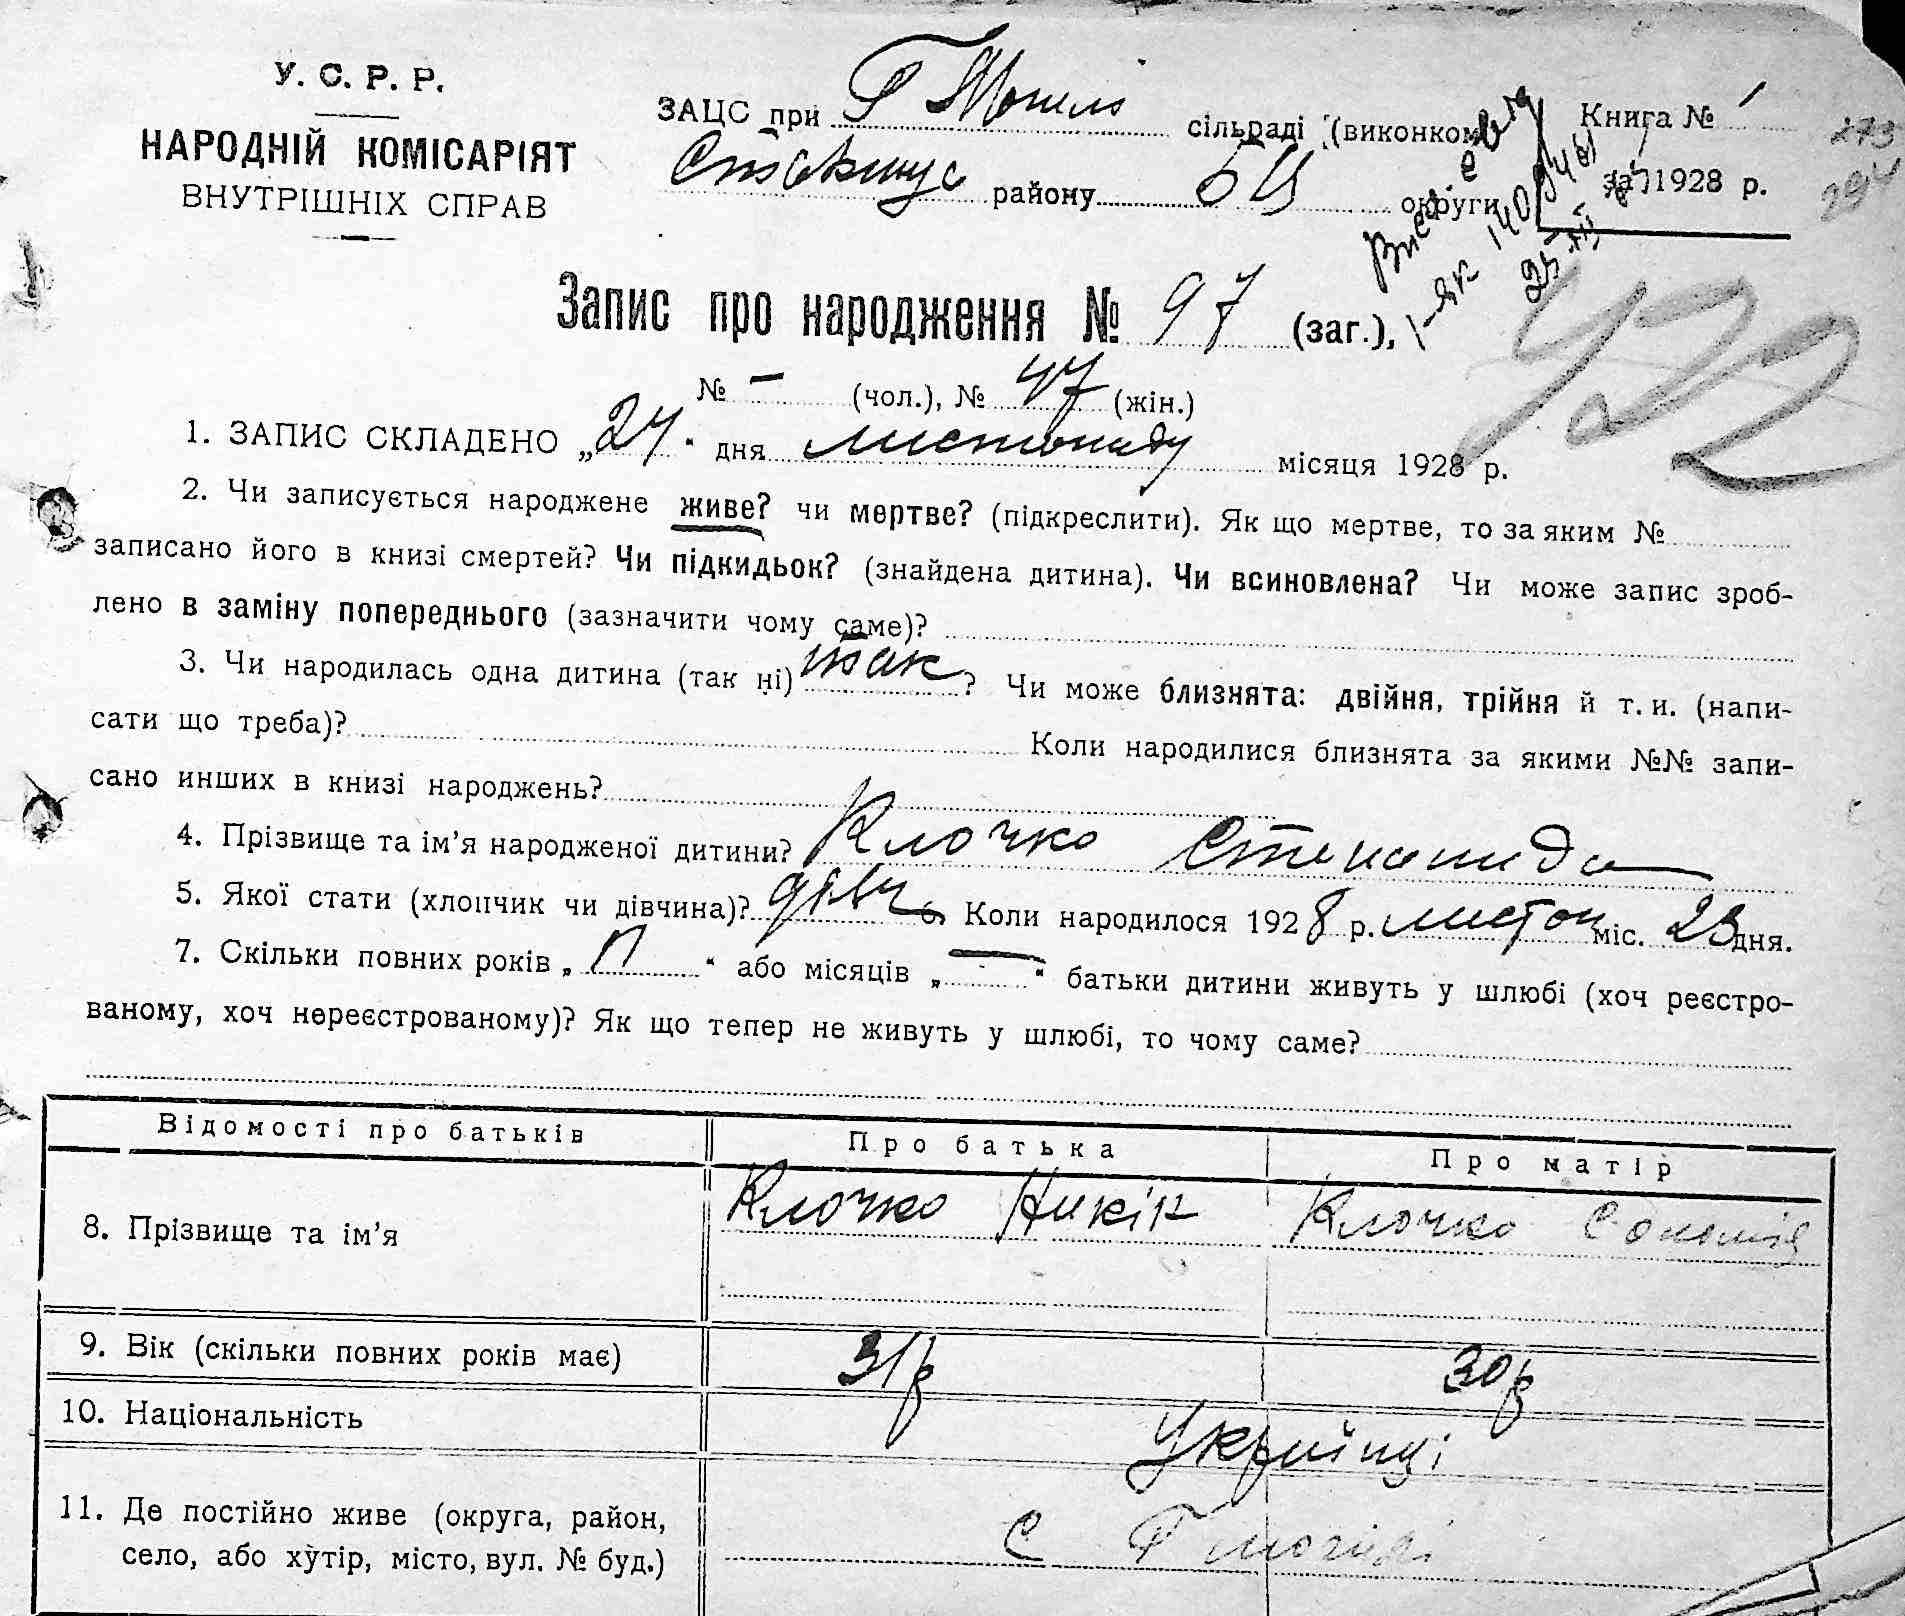 У. С. Р. Р.
НАРОДНІЙ КОМІСАРІЯТ
ВНУТРІШНІХ СПРАВ
ЗАЦС при Г сільраді (виконком
району БЦ округи
Книга № 1
за 1928 р.
273
294
Запис про народження № 97 (заг.),
422
№ — (чол.), № 47 (жін.)
1. ЗАПИС СКЛАДЕНО „24“ дня листопаду місяця 1928 р.
2. Чи записується народжене живе? чи мертве? (підкреслити). Як що мертве, то за яким №
записано його в книзі смертей? Чи підкидьок? (знайдена дитина). Чи всиновлена? Чи може запис зроб-
лено в заміну попереднього (зазначити чому саме)?
3. Чи народилась одна дитина (так ні) так? Чи може близнята: двійня, трійня й т. и. (напи-
сати що треба)? Коли народилися близнята за якими №№ запи-
сано инших в книзі народжень?
4. Прізвище та ім’я народженої дитини? Клочко Степанида
5. Якої стати (хлопчик чи дівчина)? дівч 6. Коли народилося 1928 р. листоп міс. 23 дня.
7. Скільки повних років „ “ або місяців „—“ батьки дитини живуть у шлюбі (хоч реєстро-
ваному, хоч нереєстрованому)? Як що тепер не живуть у шлюбі, то чому саме?
Відомості про батьків Про батька Про матір
8. Прізвище та ім’я Клочко Никін Клочко Соломія
9. Вік (скільки повних років має) 31 р 30 р
10. Національність Українці
11. Де постійно живе (округа, район,
село, або хутір, місто, вул. № буд.) с Г